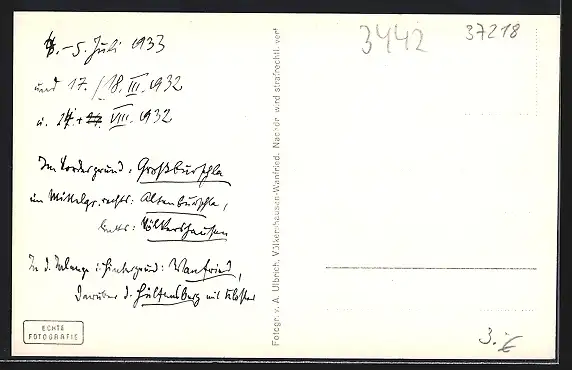 4.-5. Juli 1933
und 17./18. III. 1932
u. 24. + VIII. 1932
Im Vordergrund: Großburschla
im Mittelgr. rechts: Altenburschla,
links: Völkershausen
In d. i. Hintergrund: Wanfried,
darüber d. Hülfensberg mit Kloster
ECHTE
FOTOGRAFIE
Fotogr. v. A. Ulbrich, Völkershausen-Wanfried. Nachdr. wird strafrechtl. verf.
3442
37218
3.- €